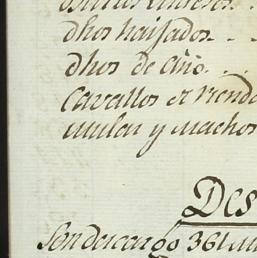 dhos haijados
dhos de año.
Cavallos de rienda
mular y Machos
Des
Son descargo 361 mu